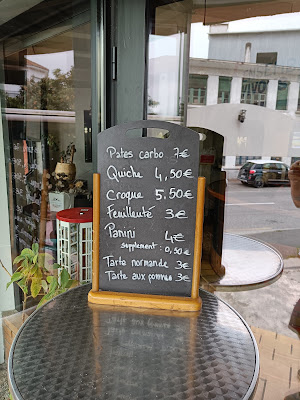 Pates carbo 7€
Quiche 4,50€
Croque 5,50€
Feuilleuté 3€
Panini 4€
supplement : 0,50€
Tarte normande 3€
Tarte aux pommes 3€